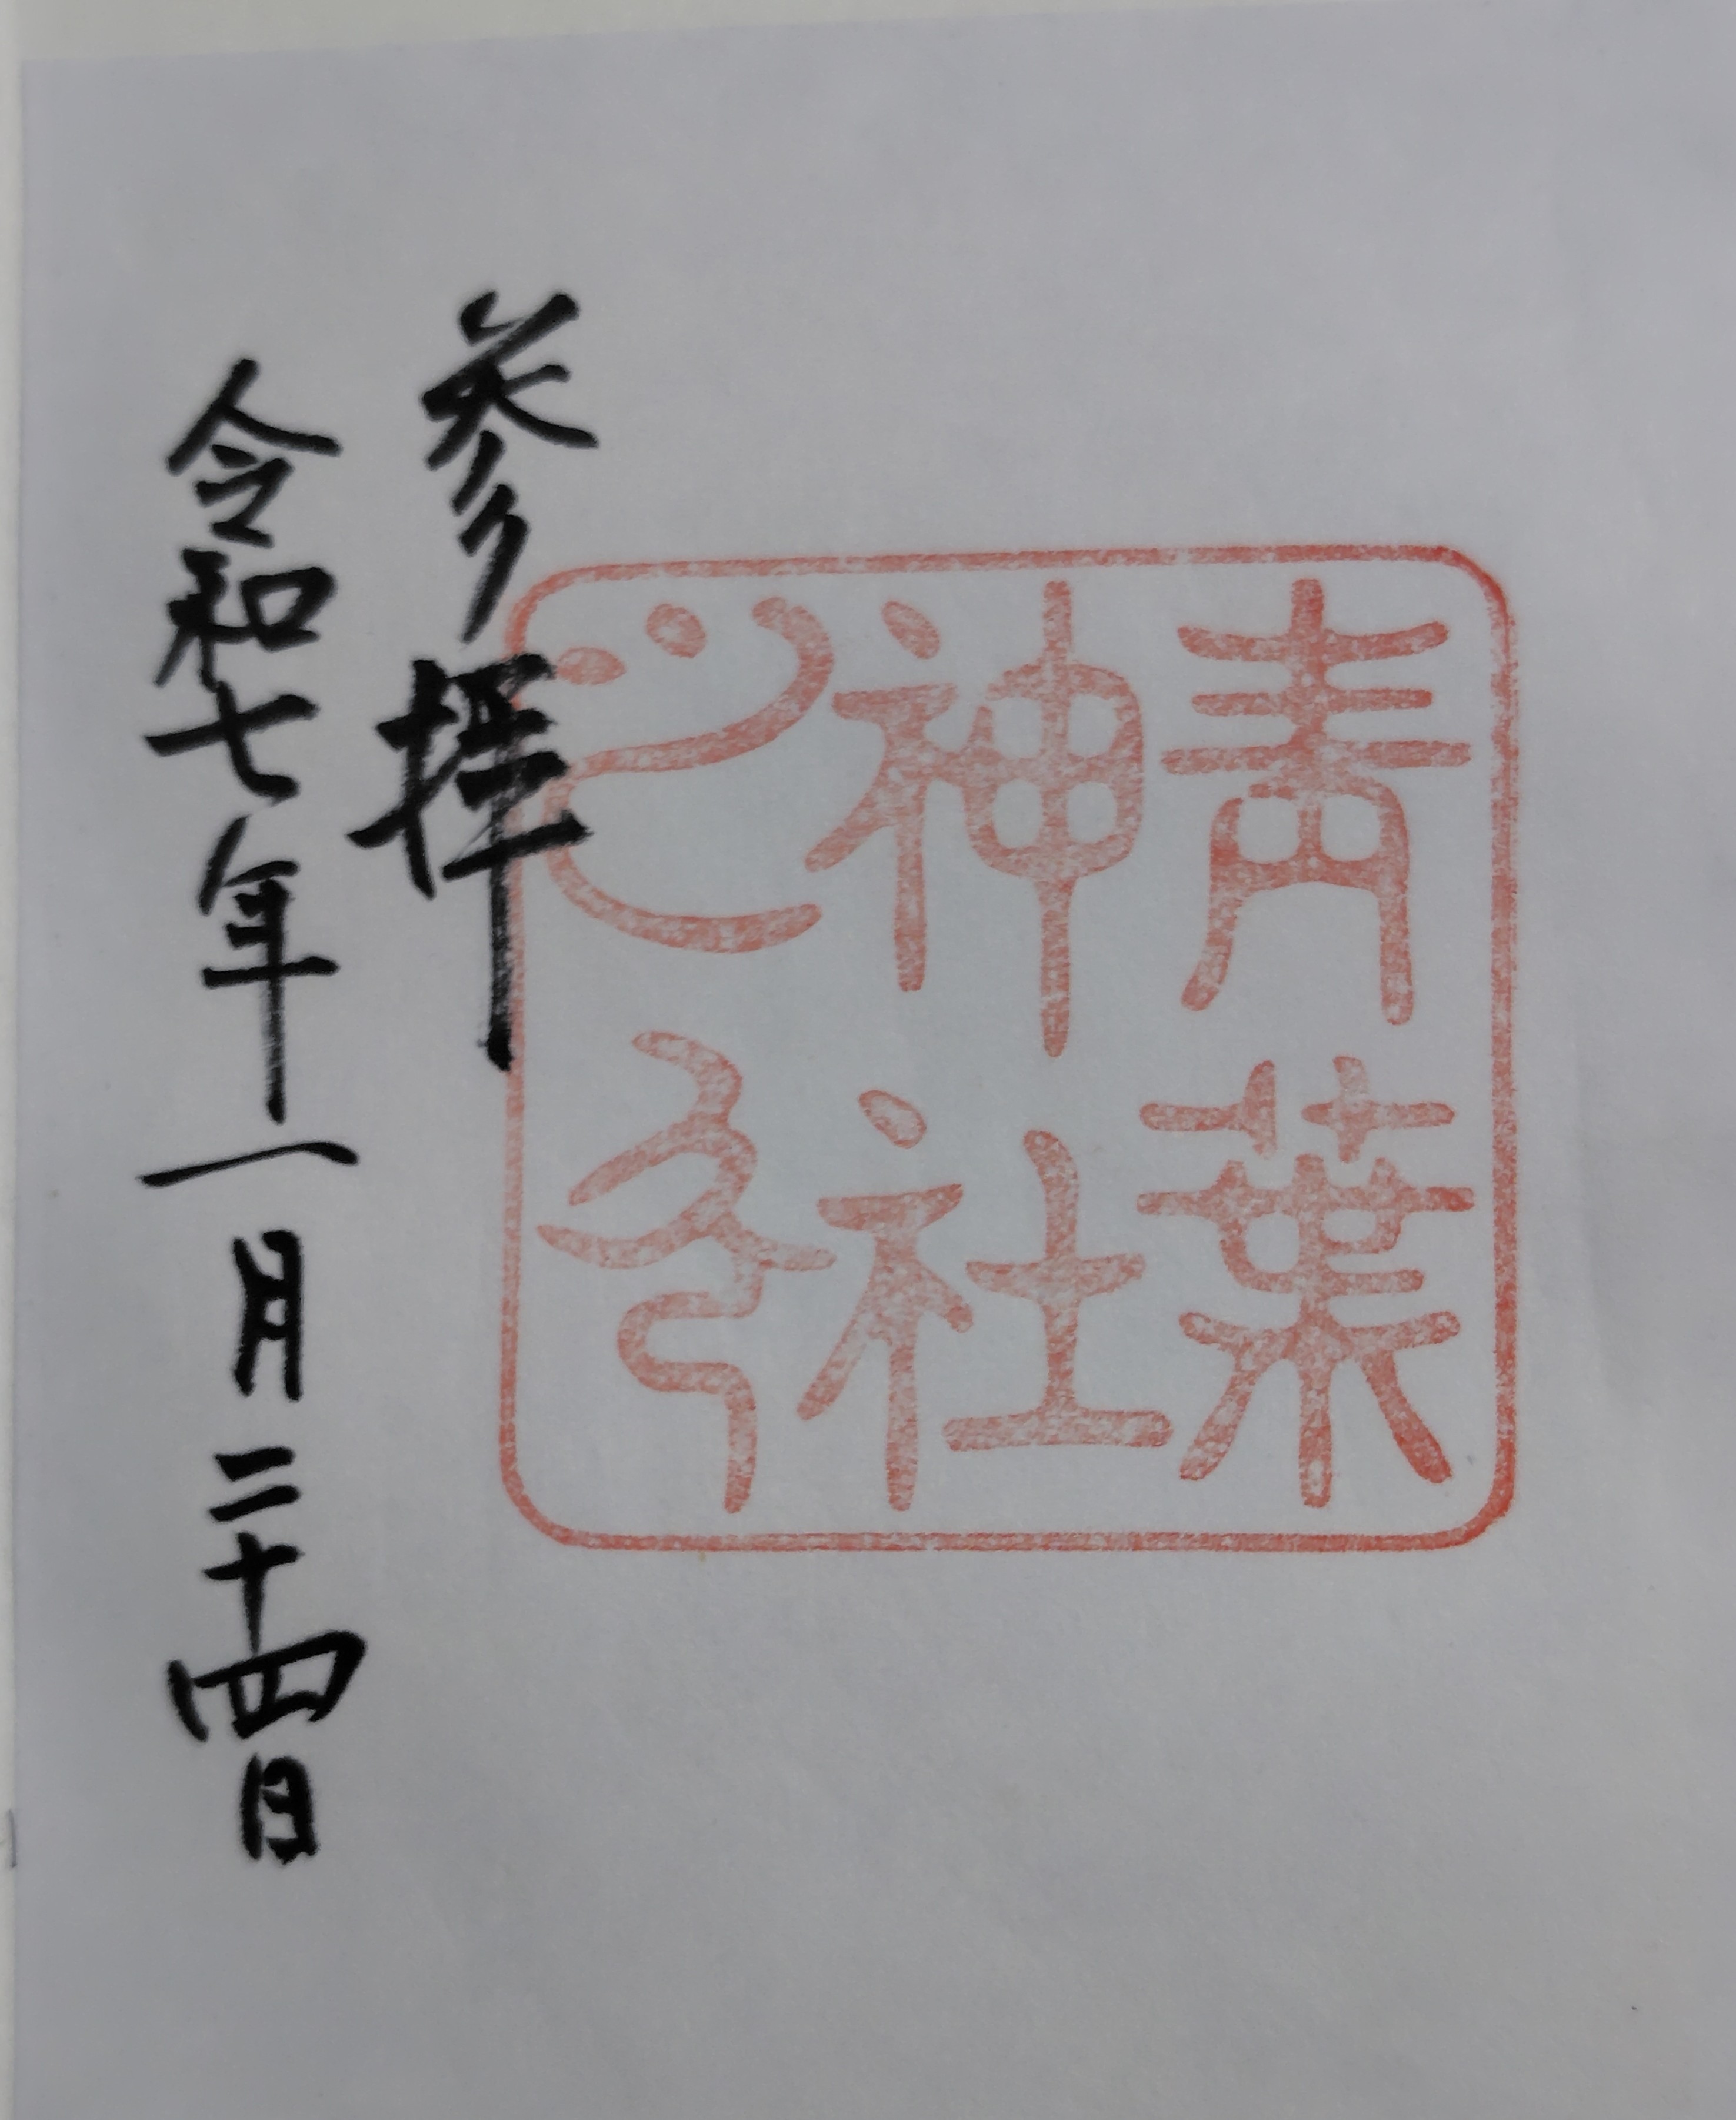 青葉
神社
之印
参拝
令和七年一月二十四日